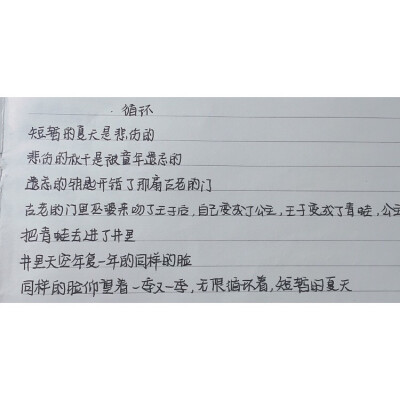 · 循环
短暂的夏天是悲伤的
悲伤的秋千是被童年遗忘的
遗忘的钥匙开错了那扇古老的门
古老的门里巫婆亲吻了王子后,自己变成了公主,王子变成了青蛙,公主
把青蛙丢进了井里
井里天空年复一年的同样的脸
同样的脸仰望着一季又一季,无限循环着,短暂的夏天